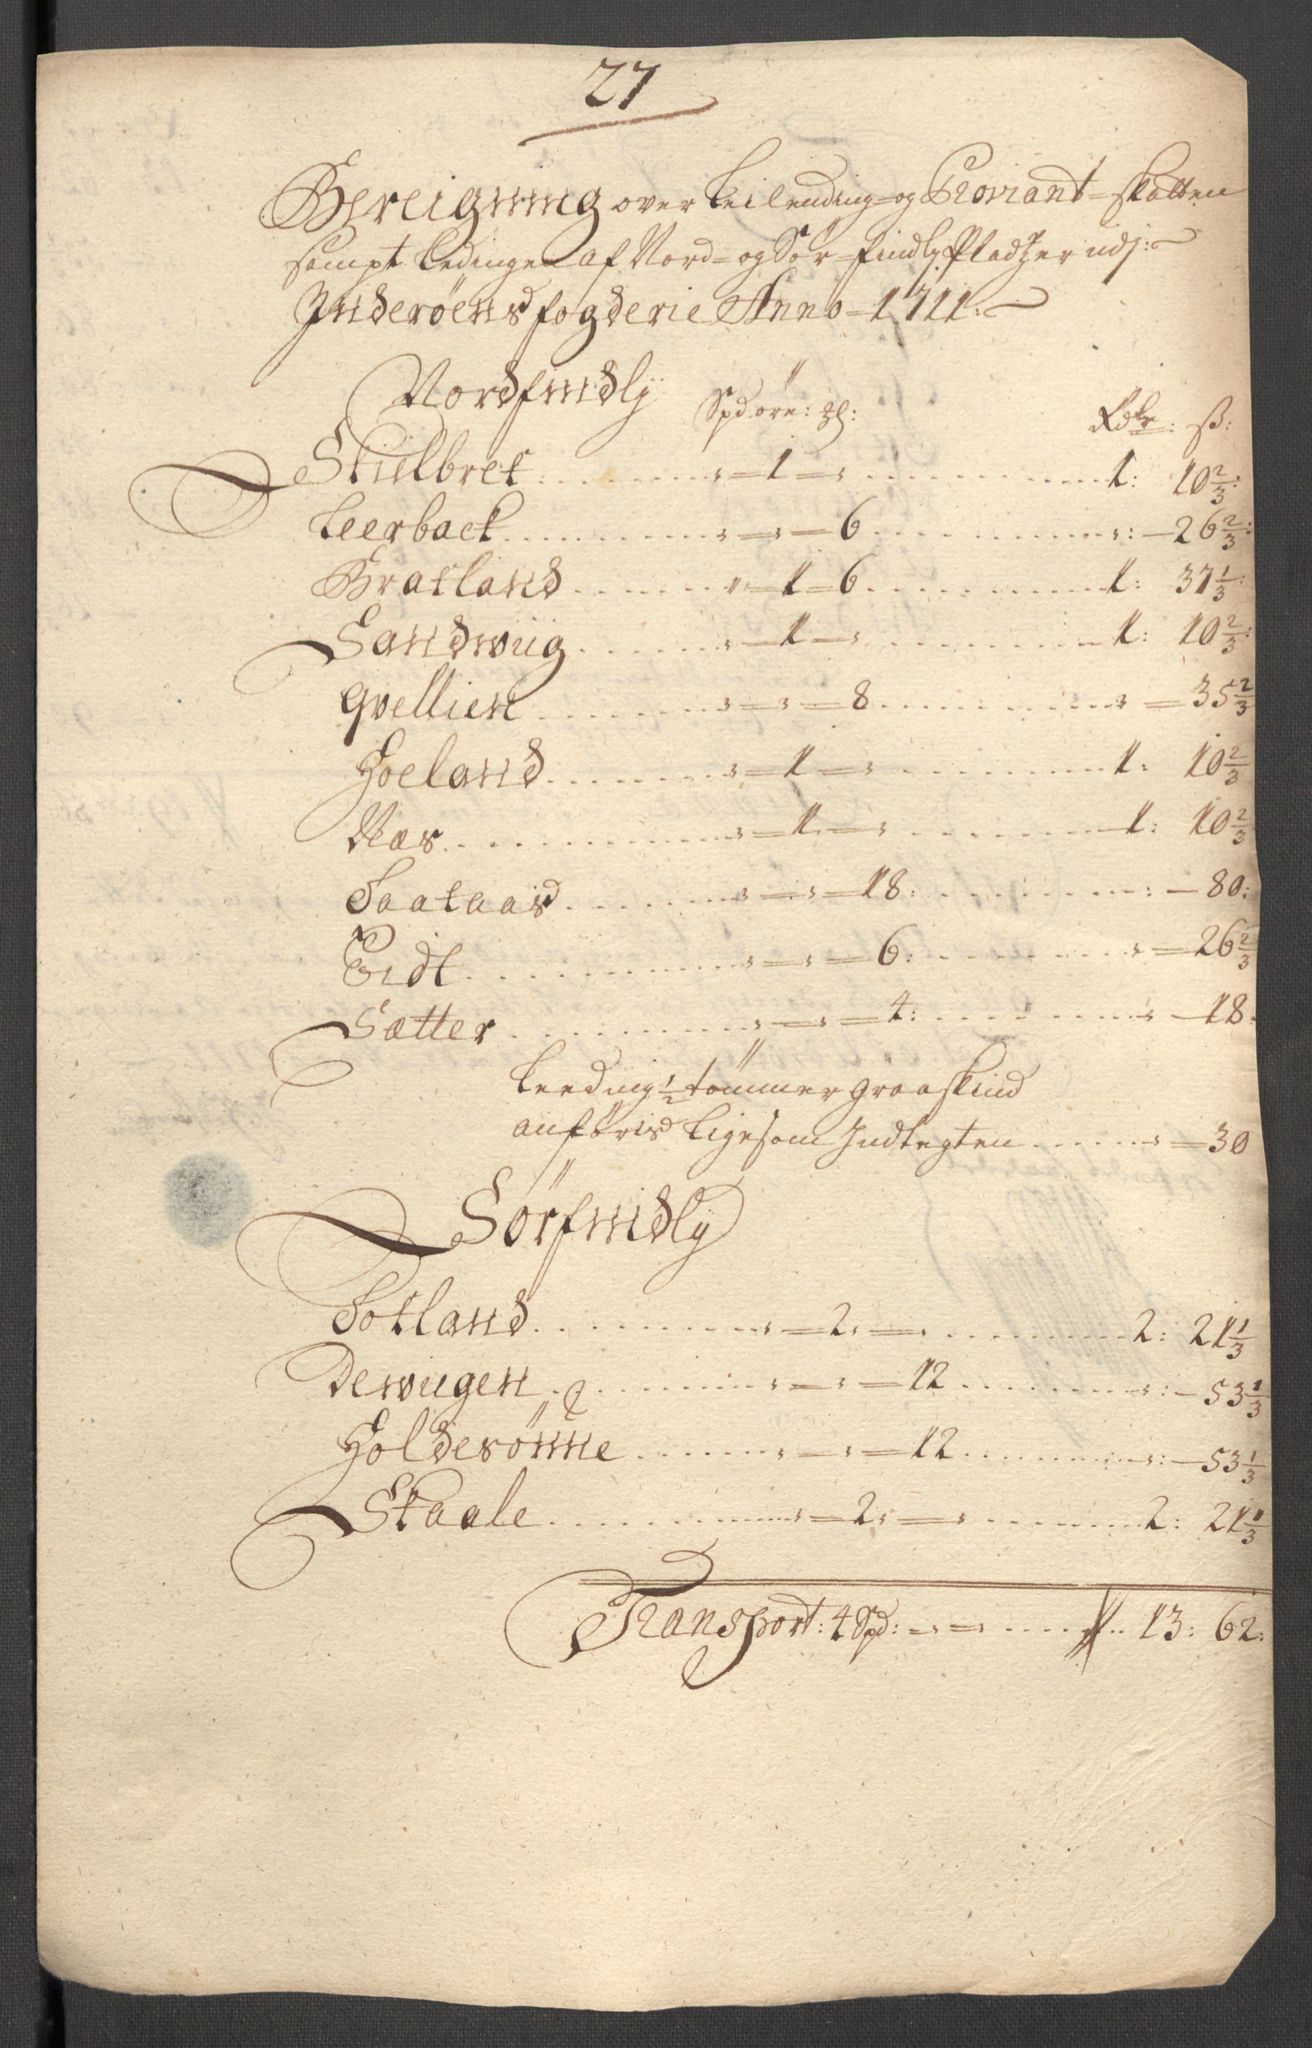 27
Bereigning over Leilending- og Proviant-skatten
sampt Ledingen af Nord- og Sör-findly Pladtzer udj:
Inderöens fogderie Anno 1711:
Nordfindly Spd öre: : Rdlr: ß:
Skielbret ...... " = 1 = " ...... 1: 10 2/3:
Leerbaek ...... " = " = 6 ...... " : 26 2/3:
Bratland ...... " = 1 = 6 ...... 1: 37 1/3:
Sandwiig ...... " = 1 = " ...... 1: 10 2/3:
Qvellien ...... " = " = 8 ...... " = 35 2/3
Hoeland ...... " = 1 = " ...... 1: 10 2/3
Næs ...... " = 1 = " ...... 1: 10 2/3
Saataas ...... " = " = 18: ...... : 80:
Eidt ...... " = " = 6: ...... " = 26 2/3
Sætter ...... " = " = 4: ...... " 18:
Leeding 1/2 tömmer graaskind
anföris Ligesom Indtegten ...... " = 30
Sörfindly
Sotland ...... " = 2 " = " ...... 2: 21 1/3
Dewiigen ...... " = " = 12 ...... " : 53 1/3
Holdesönne ...... " = " = 12 ...... " : 53 1/3
Skaale ...... " = 2 " = " ...... 2: 21 1/3
Transport: 4 Spd: = " = " ...... 13: 62: